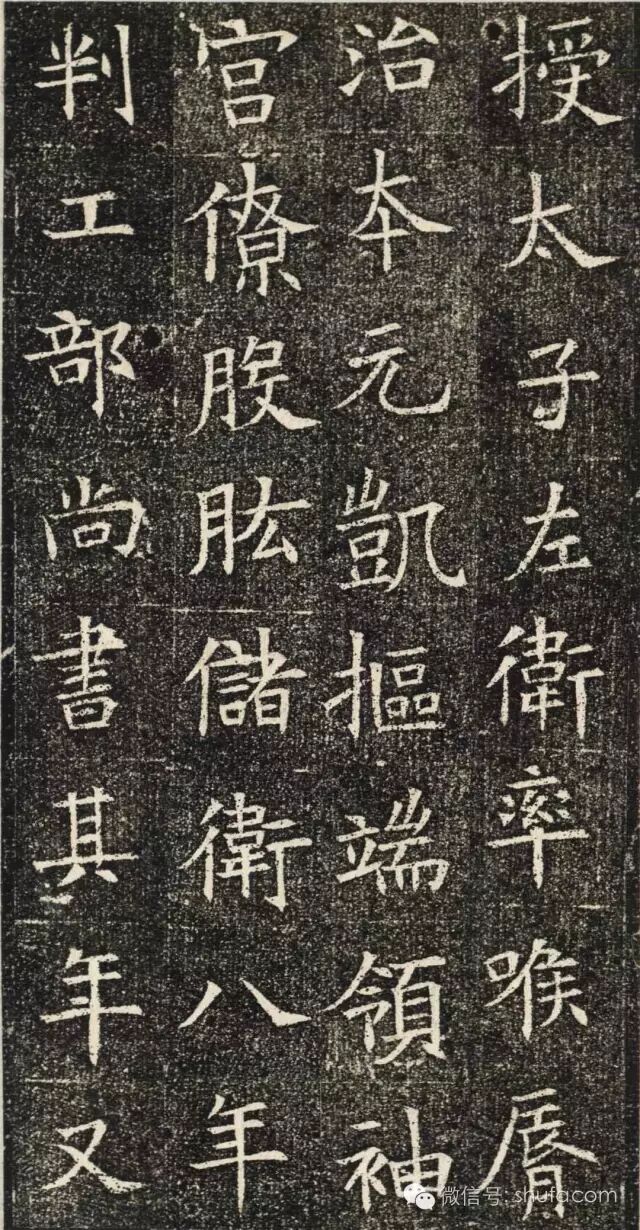 授太子左衛率喉脣
治本元凱摳端領袖
官僚股肱儲衛八年
判工部尚書其年又
微信号: shufacom